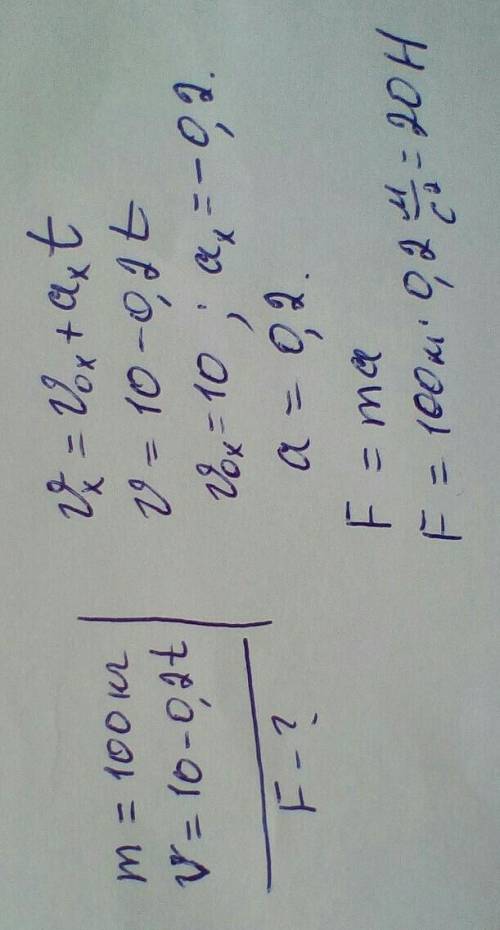 m = 100 кг
v = 10 - 0,2t
F - ?
vₓ = v₀ₓ + aₓt
v = 10 - 0,2t
v₀ₓ = 10 ; aₓ = -0,2.
a = 0,2.
F = ma
F = 100кг · 0,2 м/с² = 20Н